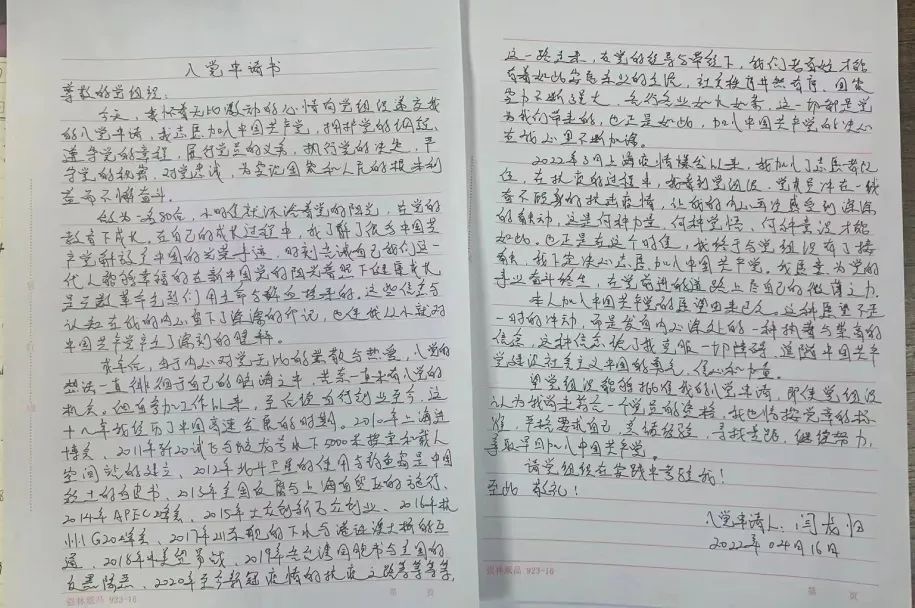 入党申请书
尊敬的党组织:
今天,我怀着无比激动的心情向党组织递交我
的入党申请,我志愿加入中国共产党,拥护党的纲领,
遵守党的章程,履行党员的义务,执行党的决定,严
守党的纪律,对党忠诚,为实现国家和人民的根本利
益而不懈奋斗。
做为一名80后,小时候就沐浴着党的阳光,在党的
教育下成长,在自己的成长过程中,我了解了很多中国共
产党解放了中国的光荣事迹,时刻告诫自己我们这一
代人能够幸福的在新中国党的阳光普照下健康成长
是无数革命先烈们用生命与鲜血换来的。这些信念与
认知在我的内心留下了深深的印记,也使我从小就对
中国共产党产生了深刻的
成年后,由于内心对党无比的崇敬与热爱,入党的
想法一直徘徊于自己的脑海之中,苦于一直未有入党的
机会。但自参加工作以来,至后续自行创业至今,这
十八年我经历了中国高速发展的时期。2010年上海世
博会、2011年歼20试飞与蛟龙号水下5000米探索和载人
空间站的建立、2012年北斗卫星的使用与钓鱼岛是中国
领土的白皮书、2013年全国反腐与上海自贸区的施行、
2014年APEC峰会、2015年大众创新万众创业、2016年杭
州G20峰会、2017年山东舰的下水与港珠澳大桥的互
通、2018年中美贸易战、2019年
2020年至今新冠疫情的抗疫之路等等等等,
张林纸品 923-16
第 页
这一路走来,在党的领导与带领下,我们老百姓才能
有着如此安居乐业的生活,社会秩序井然有序,国家
实力不断强大,各行各业如火如荼,这一切都是党
为我们带来的,也正是如此,加入中国共产党的决心
在我心里不断加深。
2022年3月上海疫情爆发以来,我加入了志愿者队
伍,在抗疫的过程中,我看到党组织、党员总冲在一线
奋不顾身的抗击疫情,让我的内心再次感受到深深
的触动,这是何种力量,何种觉悟,何种意识才能
如此。也正是在这个时候,我终于与党组织有了接
触,我下定决心志愿加入中国共产党。我愿意为党的
事业奋斗终生,在党前进的道路上尽自己的微薄之力。
本人加入中国共产党的愿望由来已久。这种愿望不是
一时的冲动,而是发自内心深处的一种执着与崇高的
信念,这种信念给了我克服一切障碍、追随中国共产
党建设社会主义中国的勇气、信心和力量。
望党组织能够批准我的入党申请,即使党组织
认为我尚未符合一个党员的资格,我也将按党章的标
准,严格要求自己,总结经验,寻找差距,继续努力,
争取早日加入中国共产党。
请党组织在实践中考验我!
至此 敬礼!
入党申请人:闫龙归
2022年04月16日
张林纸品 923-16
第 页